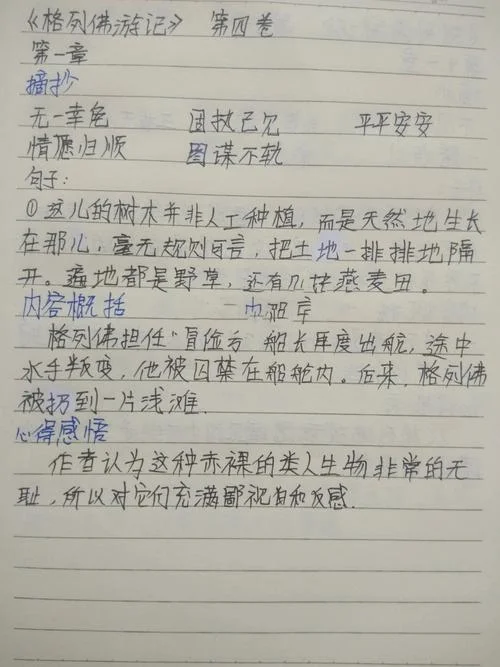 《格列佛游记》 第四卷
第一章
摘抄
无一幸免 固执己见 平平安安
情愿归顺 图谋不轨
句子：
①这儿的树木并非人工种植，而是天然地生长
在那儿，毫无规则可言，把土地一排排地隔
开。遍地都是野草，还有几块燕麦田。
内容概括
格列佛担任"冒险号"船长再度出航，途中
水手叛变，他被囚禁在船舱内。后来，格列佛
被扔到一片浅滩.
心得感悟
作者认为这种赤裸的类人生物非常的无
耻，所以对它们充满鄙视和反感.